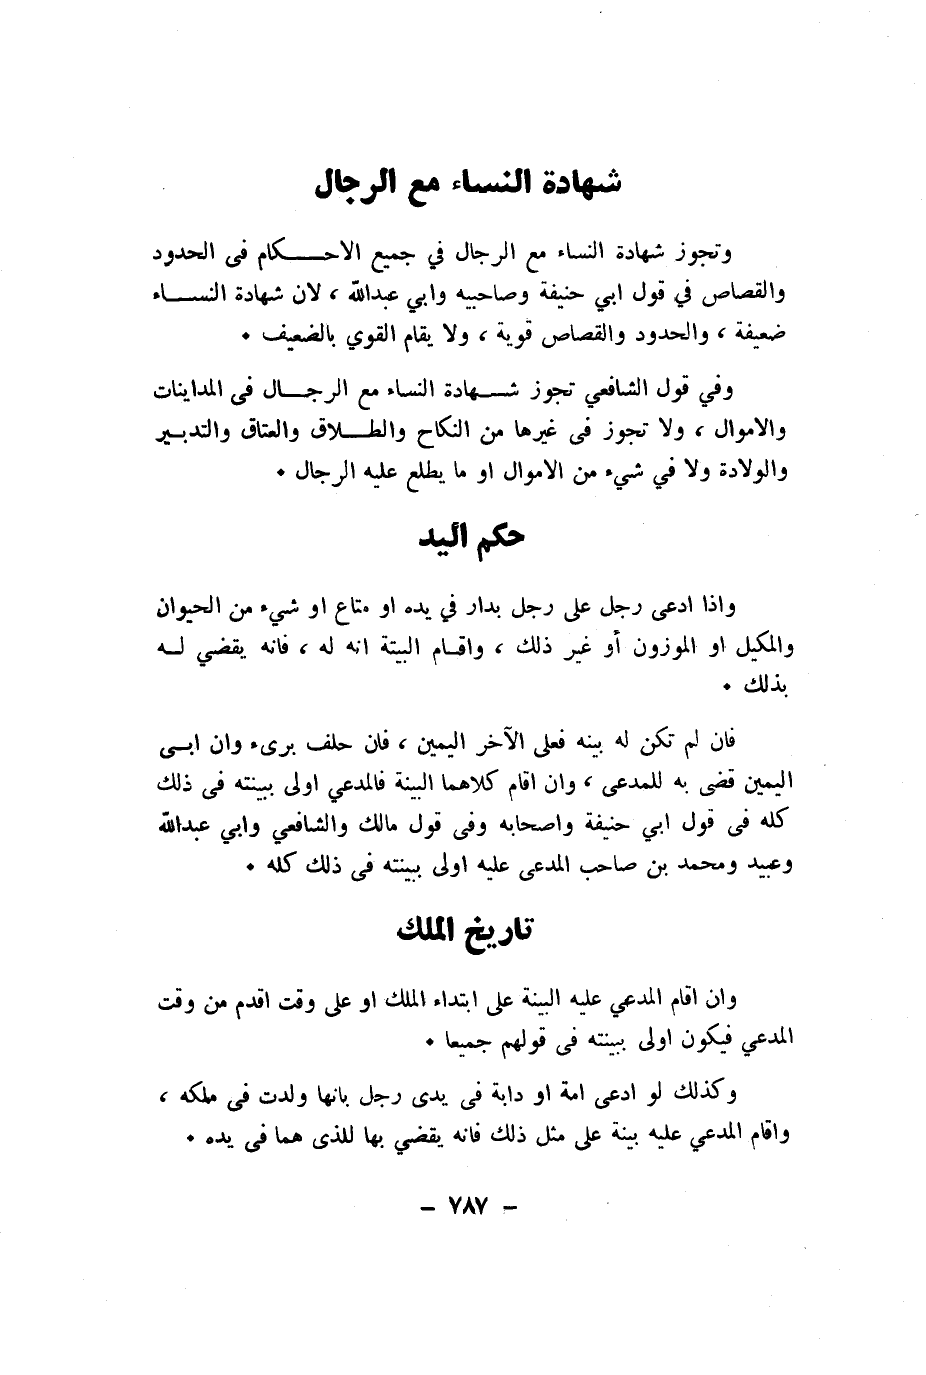 شهادة النساء مع الرجال
وتجوز شهادة النساء مع الرجال في جميع الاحكام فى الحدود
والقصاص في قول ابي حنيفة وصاحبيه وابي عبدالله ، لان شهادة النساء
ضعيفة ، والحدود والقصاص قوية ، ولا يقام القوي بالضعيف .
وفي قول الشافعي تجوز شهادة النساء مع الرجال فى المداينات
والاموال ، ولا تجوز فى غيرها من النكاح والطلاق والعتاق والتدبير
والولادة ولا في شيء من الاموال او ما يطلع عليه الرجال .
حكم اليد
واذا ادعى رجل على رجل بدار في يده او متاع او شيء من الحيوان
والمكيل او الموزون أو غير ذلك ، واقام البتة انه له ، فانه يقضي له
بذلك .
فان لم تكن له بينه فعلى الآخر اليمين ، فان حلف برىء وان ابى
اليمين قضى به للمدعى ، وان اقام كلاهما البينة فالمدعي اولى ببينته فى ذلك
كله فى قول ابي حنيفة واصحابه وفى قول مالك والشافعي وابي عبدالله
وعبيد ومحمد بن صاحب المدعى عليه اولى ببينته فى ذلك كله .
تاريخ الملك
وان اقام المدعي عليه البينة على ابتداء الملك او على وقت اقدم من وقت
المدعي فيكون اولى ببينته فى قولهم جميعا .
وكذلك لو ادعى امة او دابة فى يدى رجل بانها ولدت فى ملكه ،
واقام المدعي عليه بينة على مثل ذلك فانه يقضي بها للذى هما فى يده .
– ٧٨٧ –